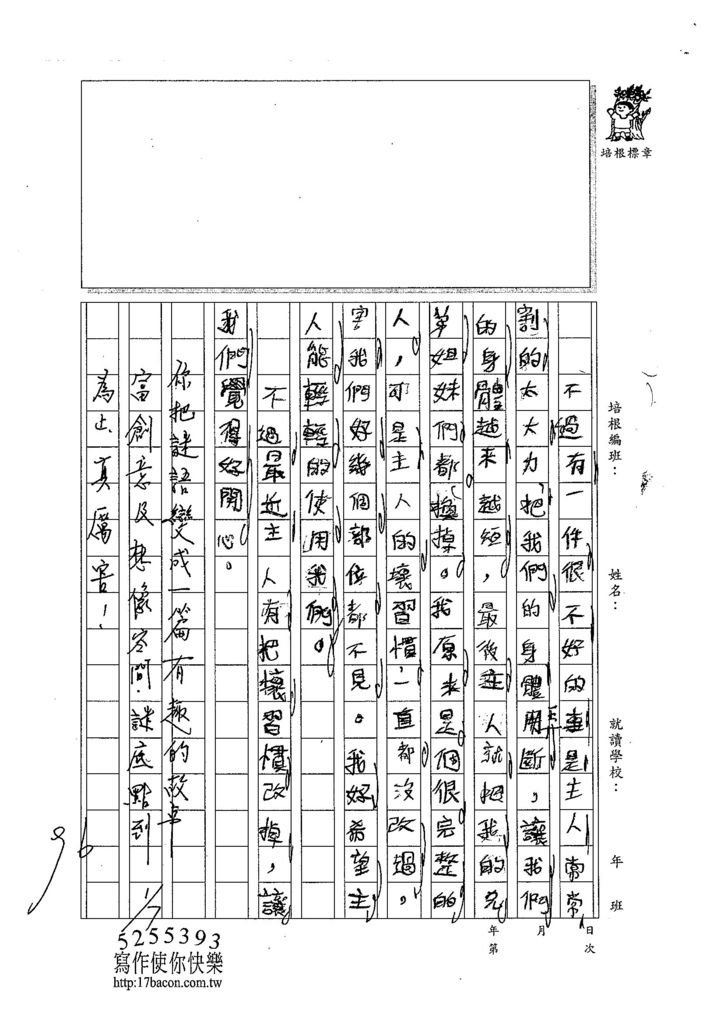 培根標章
培根編班：
姓名：
就讀學校：
年 班
不過有一件很不好的事是主人常常
割的太大力把我們的身體用斷，讓我們
的身體越來越短，最後主人就把我的兄
弟姐妹們都換掉。我原來是個很完整的
人，可是主人的壞習慣一直都沒改過，
害我們好幾個部位都不見。我好希望主
人能輕輕的使用我們。
不過最近主人有把壞習慣改掉，讓
我們覺得好開心。
你把謎語變成一篇有趣的故事
富創意及想像空間！謎底點到
為止真厲害！
96
1/7
年 月 日
第 次
5255393
寫作使你快樂
http:17bacon.com.tw